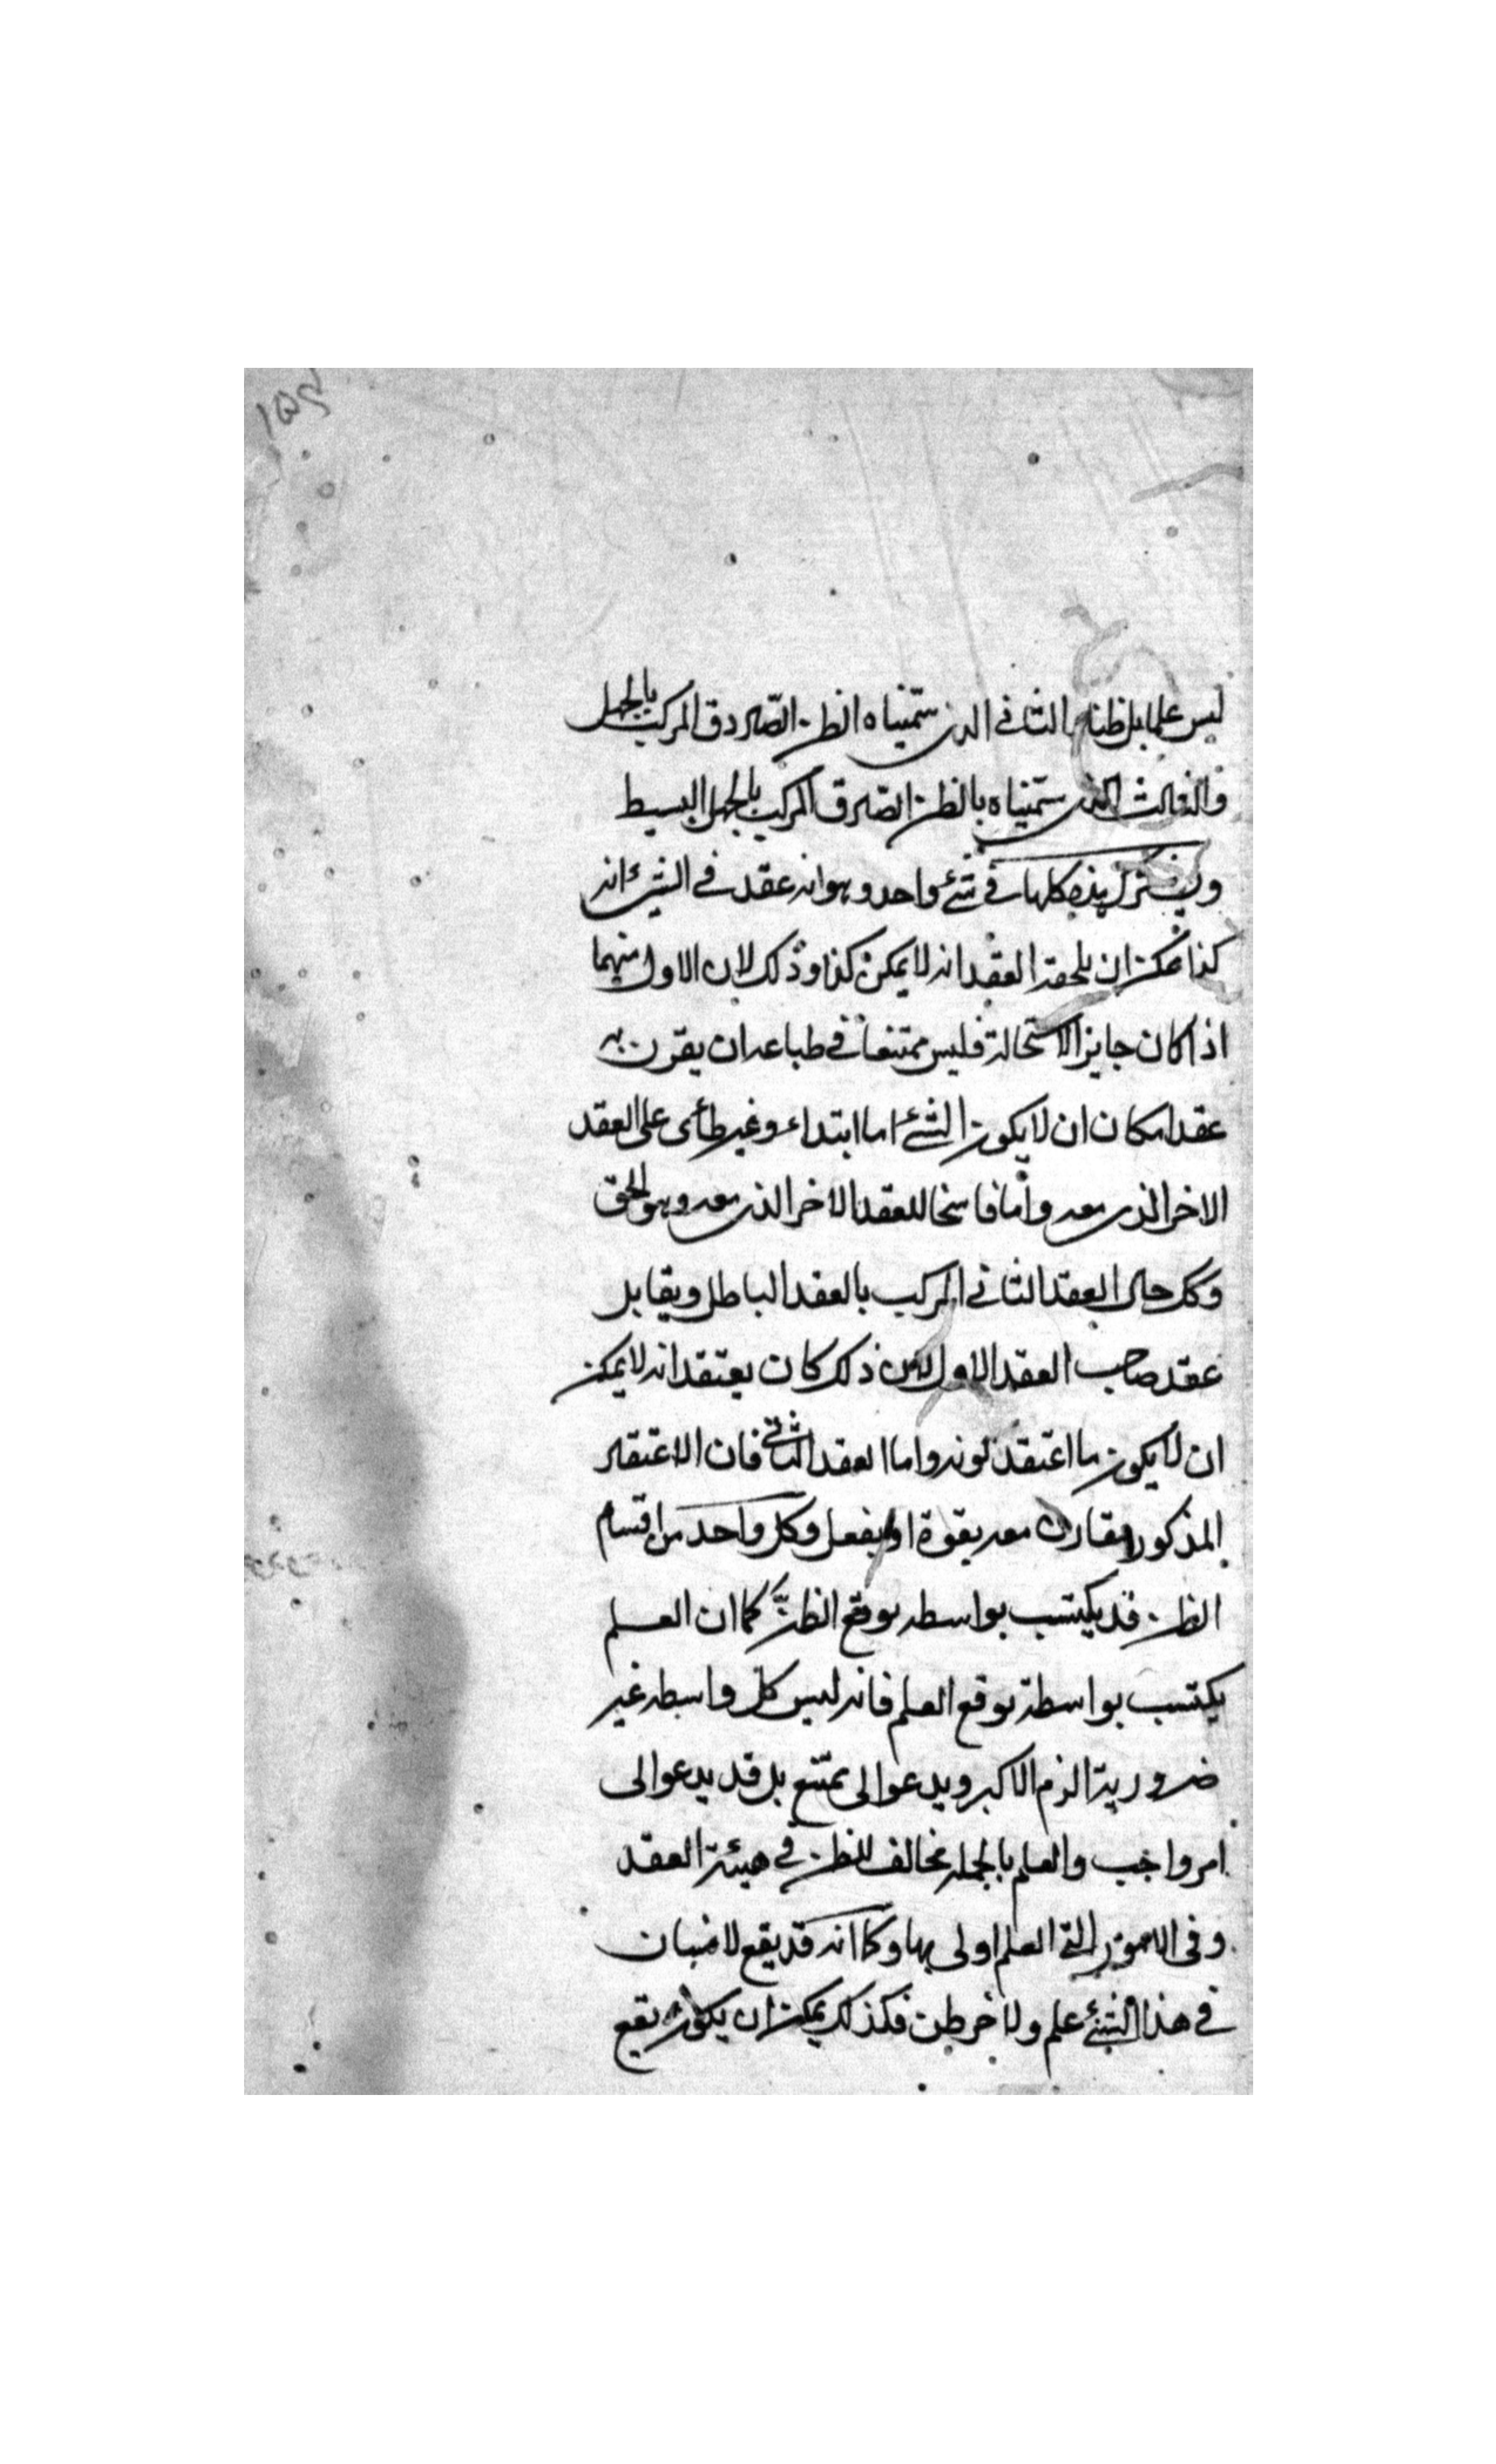 ليس علما بل ظنا والثانى الذى سمّيناه الظن الصّادق المركب بالجهل
والثالث الذى سمّيناه بالظن الصّادق المركب بالجهل البسيط
ويشترك هذه كلها فى شئ واحد وهو انه عقد فى الشئ انه
كذا ممكن ان يلحقه العقد انه لا يمكن كذا وذلك لان الاول منهما
اذا كان جايز الاستحالة فليس ممتنعا فى طباعه ان يقرن به
عقد امكان ان لا يكون الشئ اما ابتداء وغير طاء على العقد
الاخر الذى معه واما فاسخا للعقد الاخر الذى معه وهو الحق
وكل حال العقد الثانى المركب بالعقد الباطل ويقابل
عقد صاحب العقد الاول لان ذلك كان يعتقد انه لا يمكن
ان لا يكون ما اعتقد كونه واما العقد الثانى فان الاعتقاد
المذكور مقارن معه بقوة او بفعل وكل واحد من اقسام
الظن قد يكتسب بواسطه توقع الظنّ كما ان العلم
يكتسب بواسطة توقع العلم فانه ليس كل واسطه غير
ضرورية الزم الاكبر ويدعوا لى ممتنع بل قد يدعوا لى
امر واجب والعلم بالجمله مخالف للظن فى هيئة العقد
وفى الامور التى العلم اولى بها وكما انه قد يقع لانسان
فى هذا الشئ علم ولاخر ظن فكذلك يمكن ان يكون يقع